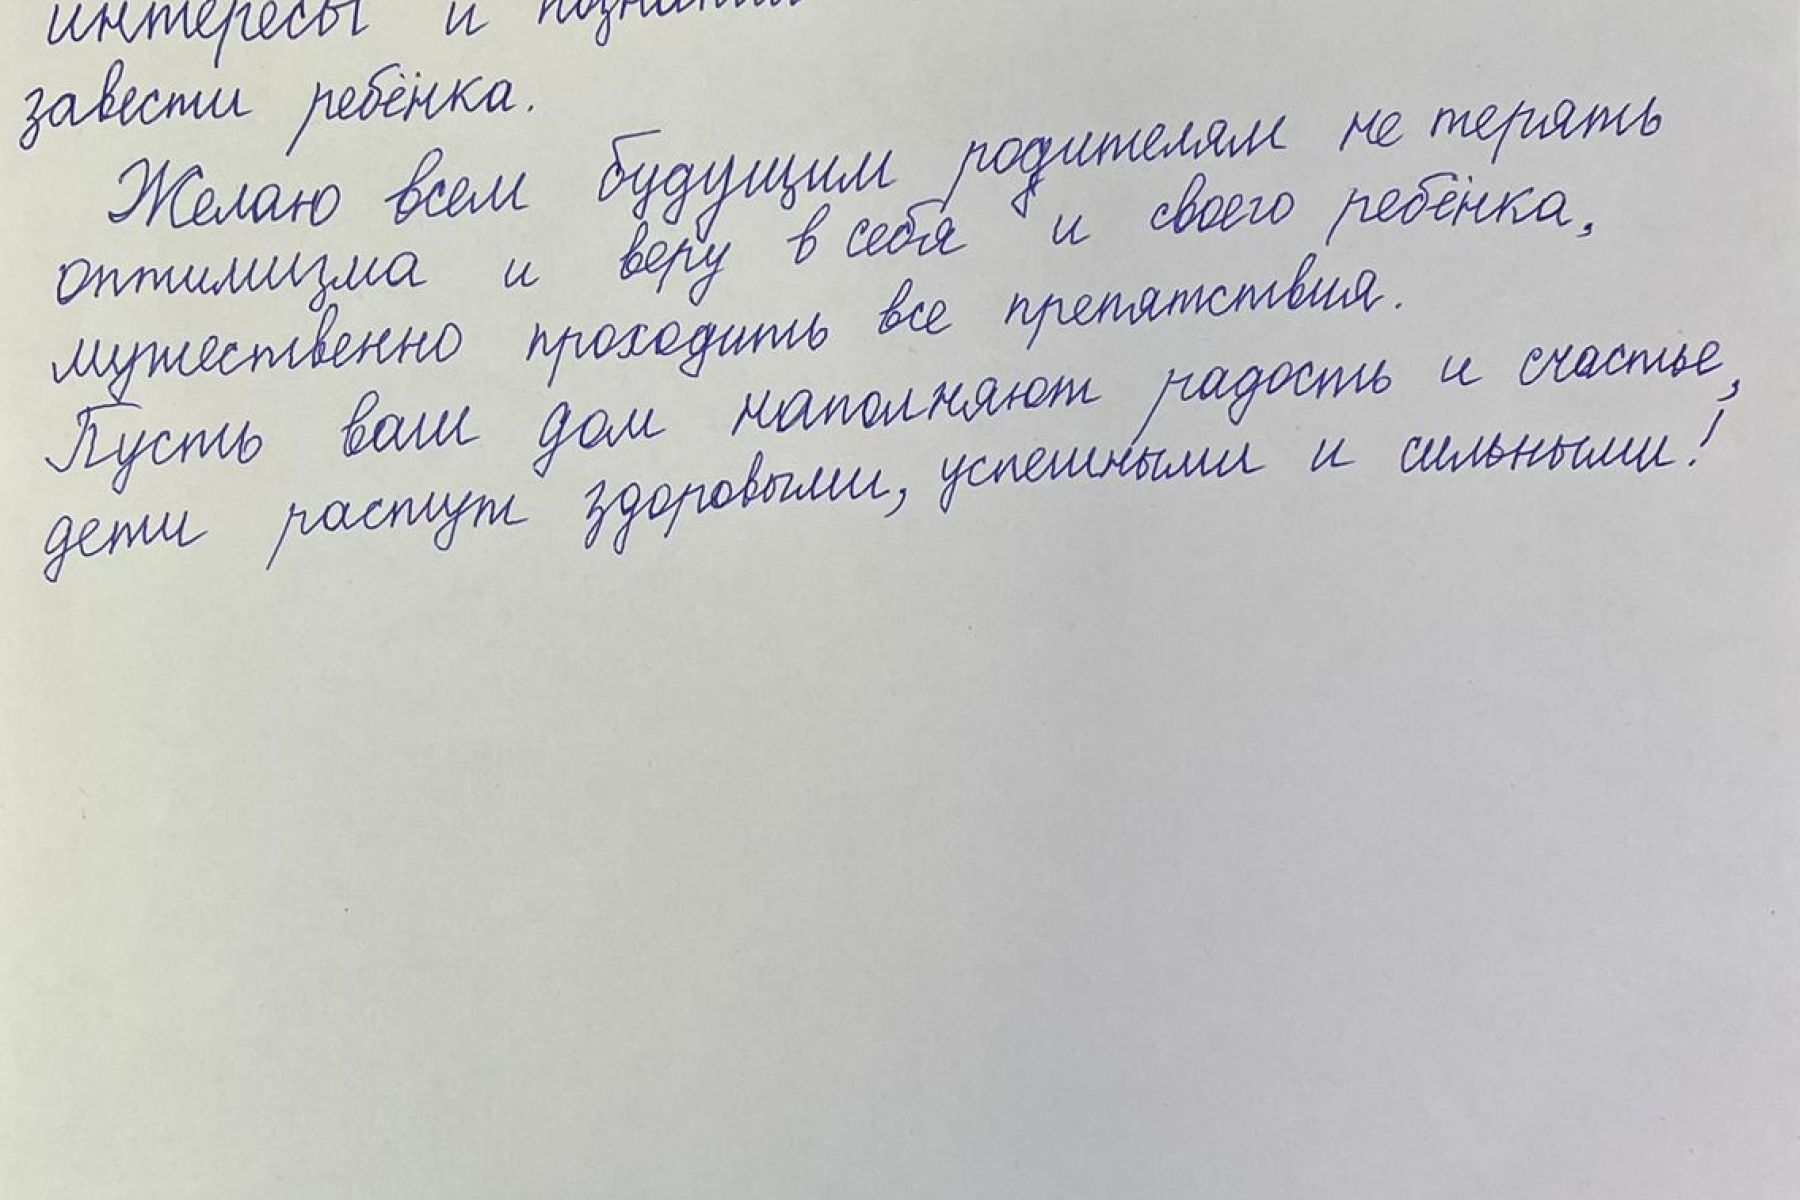 интересы и
завести ребёнка.
Желаю всем будущим родителям не терять
оптимизма и веру в себя и своего ребёнка,
мужественно проходить все препятствия.
Пусть ваш дом наполняют радость и счастье,
дети растут здоровыми, успешными и сильными!